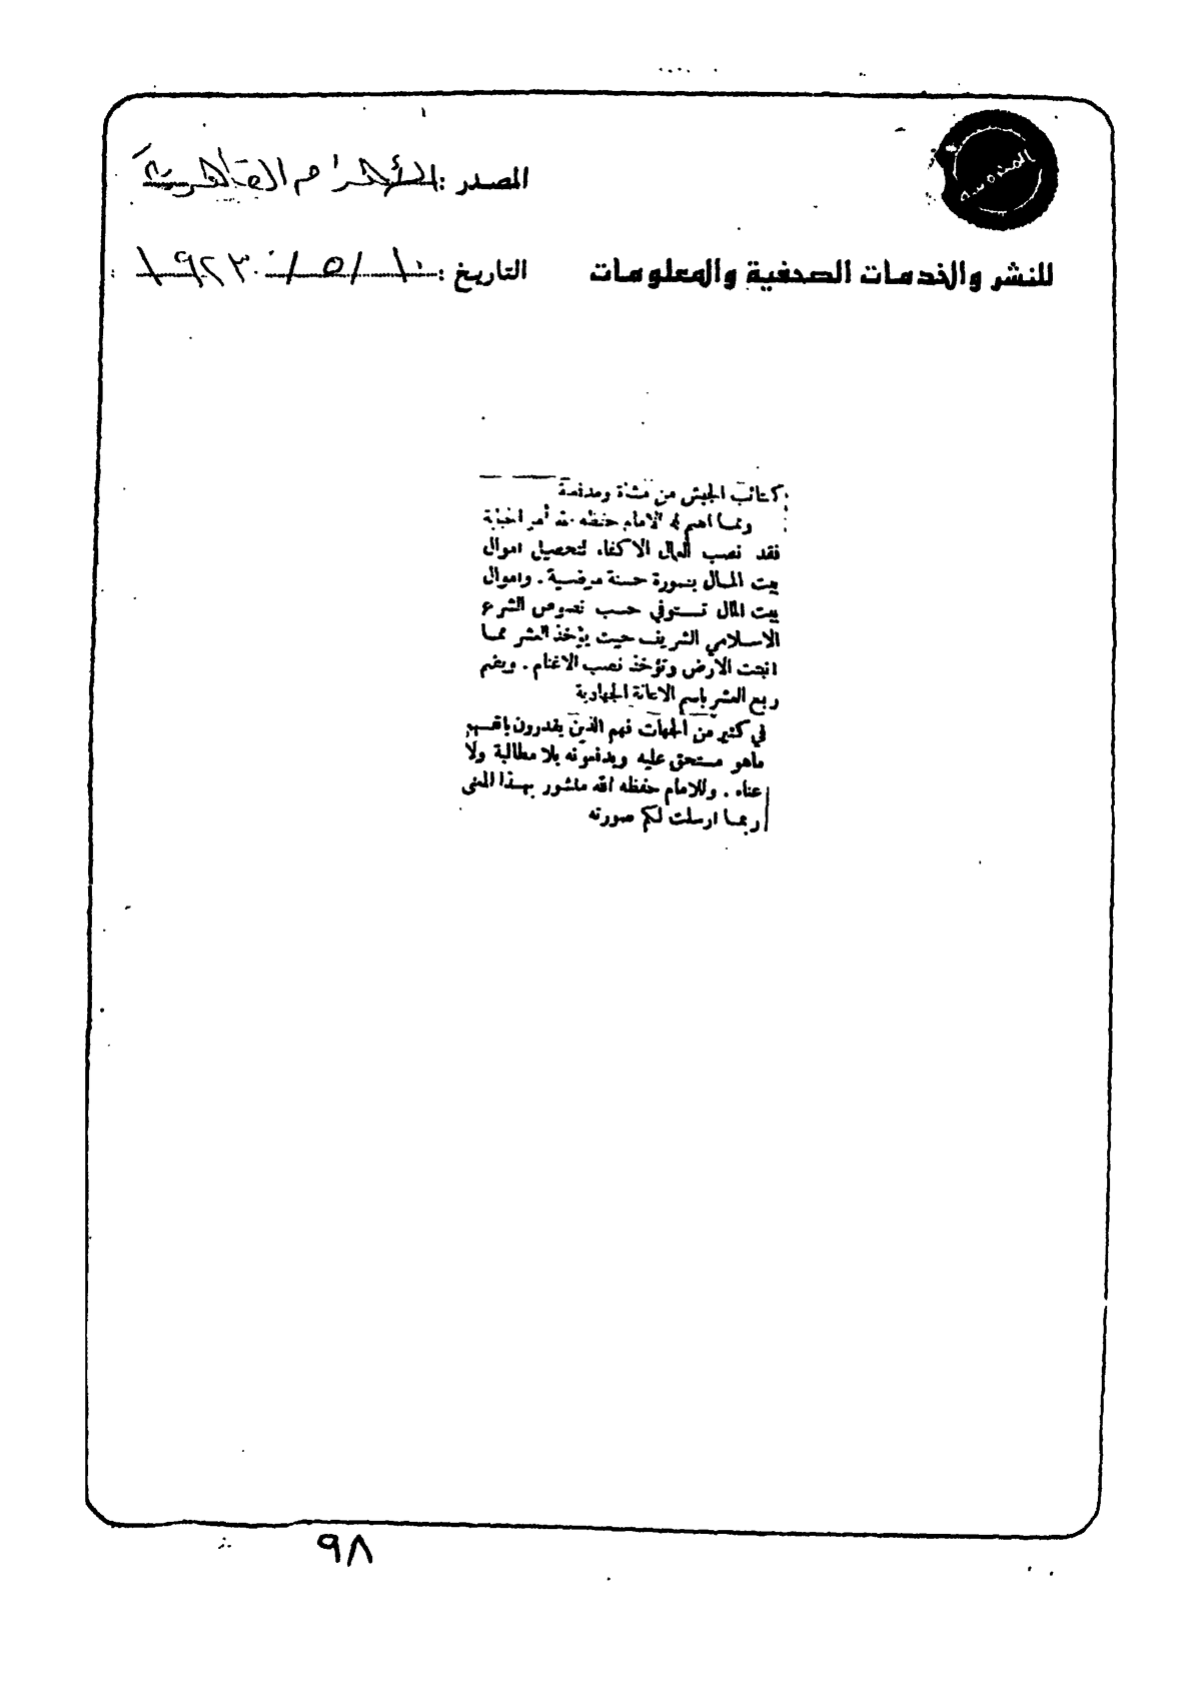 المصدر : الأهرام القاهرية
للنشر والخدمات الصحفية والمعلومات
التاريخ : ١٠ / ٥ / ١٩٢٣
كتائب الجيش من مشاة ومدفعية
ومما اهتم له الامام حفظه الله أمر الجباية
فقد نصب العمال الاكفاء لتحصيل اموال
بيت المال بصورة حسنة مرضية . واموال
بيت المال تستوفي حسب نصوص الشرع
الاسلامي الشريف حيث يؤخذ العشر مما
انبتت الارض وتؤخذ نصب الاغنام . ويضم
ربع العشر باسم الاعانة الجهادية
في كثير من الجهات فهم الذين يقدرون بانفسهم
ماهو مستحق عليه ويدفعونه بلا مطالبة ولا
عناء . وللامام حفظه الله منشور بهذا المعنى
ربما ارسلت لكم صورته
٩٨